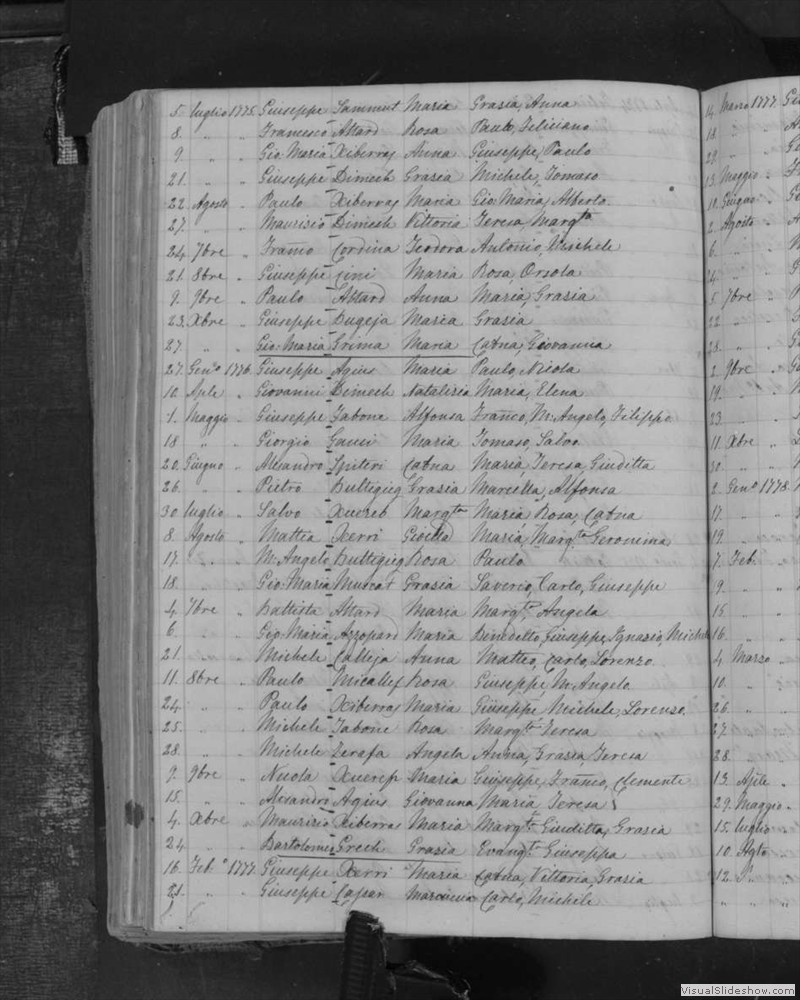 5. luglio 1775. Giuseppe Sammut Maria Grasia, Anna
8. " " Francesco Attard Rosa Paulo, Feliciano
9. " " Gio Maria Xiberras Anna Giuseppe, Paulo
21. " " Giuseppe Dimech Grasia Michele, Tomaso
22. Agosto " Paulo Xiberras Maria Gio Maria, Alberto
27. " " Maurisio Dimech Vittoria Teresa, Margta
24. 7bre " Franco Cordina Teodora Antonio, Michele
21. 8bre " Giuseppe Cini Maria Rosa, Orsola
9. 9bre " Paulo Attard Anna Maria, Grasia
23. Xbre " Giuseppe Bugeja Maria Grasia
27. " " Gio: Maria Grima Maria Catna, Giovanna
27. Genno 1776. Giuseppe Agius Maria Paulo, Nicola
10. Aple " Giovanni Dimech Natalizia Maria, Elena
1. Maggio " Giuseppe Zabone Alfonsa Franco, M: Angelo, Filippo
18 " " Giorgio Gauci Maria Tomaso, Salvo
20. Giugno " Alesandro Spiteri Catna Maria, Teresa, Giuditta
26. " " Pietro Buttigieg Grasia Marcella, Alfonsa
30 luglio " Salvo Xuereb Margta Maria Rosa, Catna
8. Agosto " Mattia Xerri Maria, Margta Geronima
17. " " M: Angelo Buttigieg Rosa Paulo
18. " " Gio: Maria Muscat Grasia Saverio, Carlo, Giuseppe
4. 7bre " Battista Attard Maria Margta Angela
6. " " Gio: Maria Azzopard Maria Benedetto, Giuseppe, Ignasio, Michele
21. " " Michele Calleja Anna Matteo, Carlo, Lorenzo
11. 8bre " Paulo Micallef Rosa Giuseppe, M: Angelo
24 " " Paulo Xiberras Maria Giuseppe Michele, Lorenzo
25. " " Michele Zabone Rosa Margta Teresa
28. " " Michele Zerafa Angela Anna, Grasia, Teresa
9. 9bre " Nicola Xuerep Maria Giuseppe, Franco, Clemente
15. " " Alesandro Agius Giovanna Maria Teresa
4. Xbre " Maurizio Xiberras Maria Margta Giuditta, Grasia
24. " " Bartolomeo Grech Grasia Evangta Giuseppa
16. Feb.o 1777. Giuseppe Xerri Maria Catna, Vittoria, Grasia
21. " " Giuseppe Casar Carlo, Michele
14. Marzo 1777.
18. " "
29. " "
13. Maggio "
10. Giugno "
2. Agosto "
6. " "
24. " "
5. 7bre "
22 " "
28. " "
2. 9bre "
19. " "
23. " "
11. Xbre "
30. " "
2. Geno 1778.
17. " "
19. " "
7. Feb. "
19. " "
15. " "
16. " "
4. Marzo "
10. " "
26. " "
27. " "
28. " "
13. Aple "
29. Maggio "
15. luglio "
10. Agto "
12. "
VisualSlideshow.com